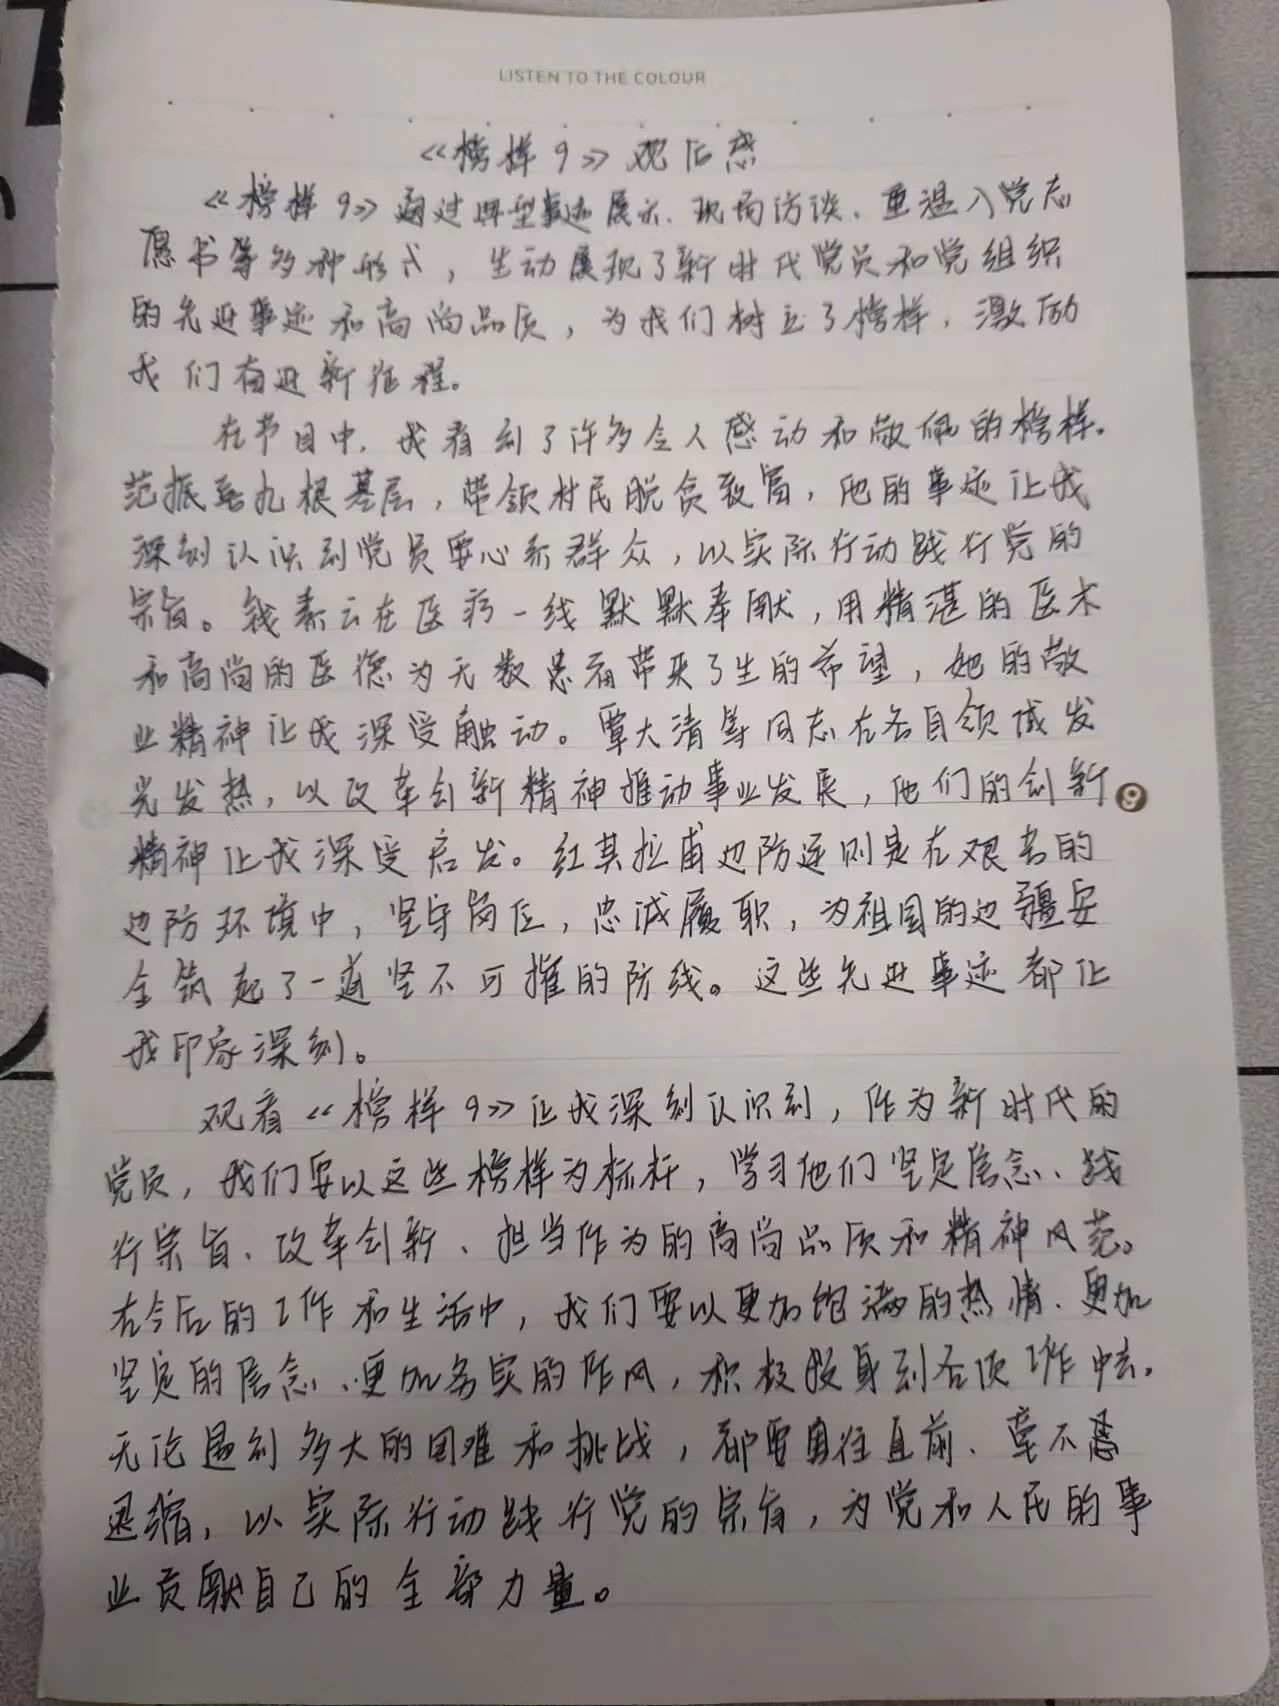 LISTEN TO THE COLOUR
《榜样9》观后感
《榜样9》通过典型事迹展示、现场访谈、重温入党志
愿书等多种形式，生动展现了新时代党员和党组织
的先进事迹和高尚品质，为我们树立了榜样，激励
我们奋进新征程。
在节目中，我看到了许多令人感动和敬佩的榜样。
范振喜扎根基层，带领村民脱贫致富，他的事迹让我
深刻认识到党员要心系群众，以实际行动践行党的
宗旨。钱素云在医疗一线默默奉献，用精湛的医术
和高尚的医德为无数患者带来了生的希望，她的敬
业精神让我深受触动。覃大清等同志在各自领域发
光发热，以改革创新精神推动事业发展，他们的创新
精神让我深受启发。红其拉甫边防连则是在艰苦的
边防环境中，坚守岗位，忠诚履职，为祖国的边疆安
全筑起了一道坚不可摧的防线。这些先进事迹都让
我印象深刻。
观看《榜样9》让我深刻认识到，作为新时代的
党员，我们要以这些榜样为标杆，学习他们坚定信念、践
行宗旨、改革创新、担当作为的高尚品质和精神风范。
在今后的工作和生活中，我们要以更加饱满的热情、更加
坚定的信念、更加务实的作风，积极投身到各项工作中去。
无论遇到多大的困难和挑战，都要勇往直前、毫不
退缩，以实际行动践行党的宗旨，为党和人民的事
业贡献自己的全部力量。